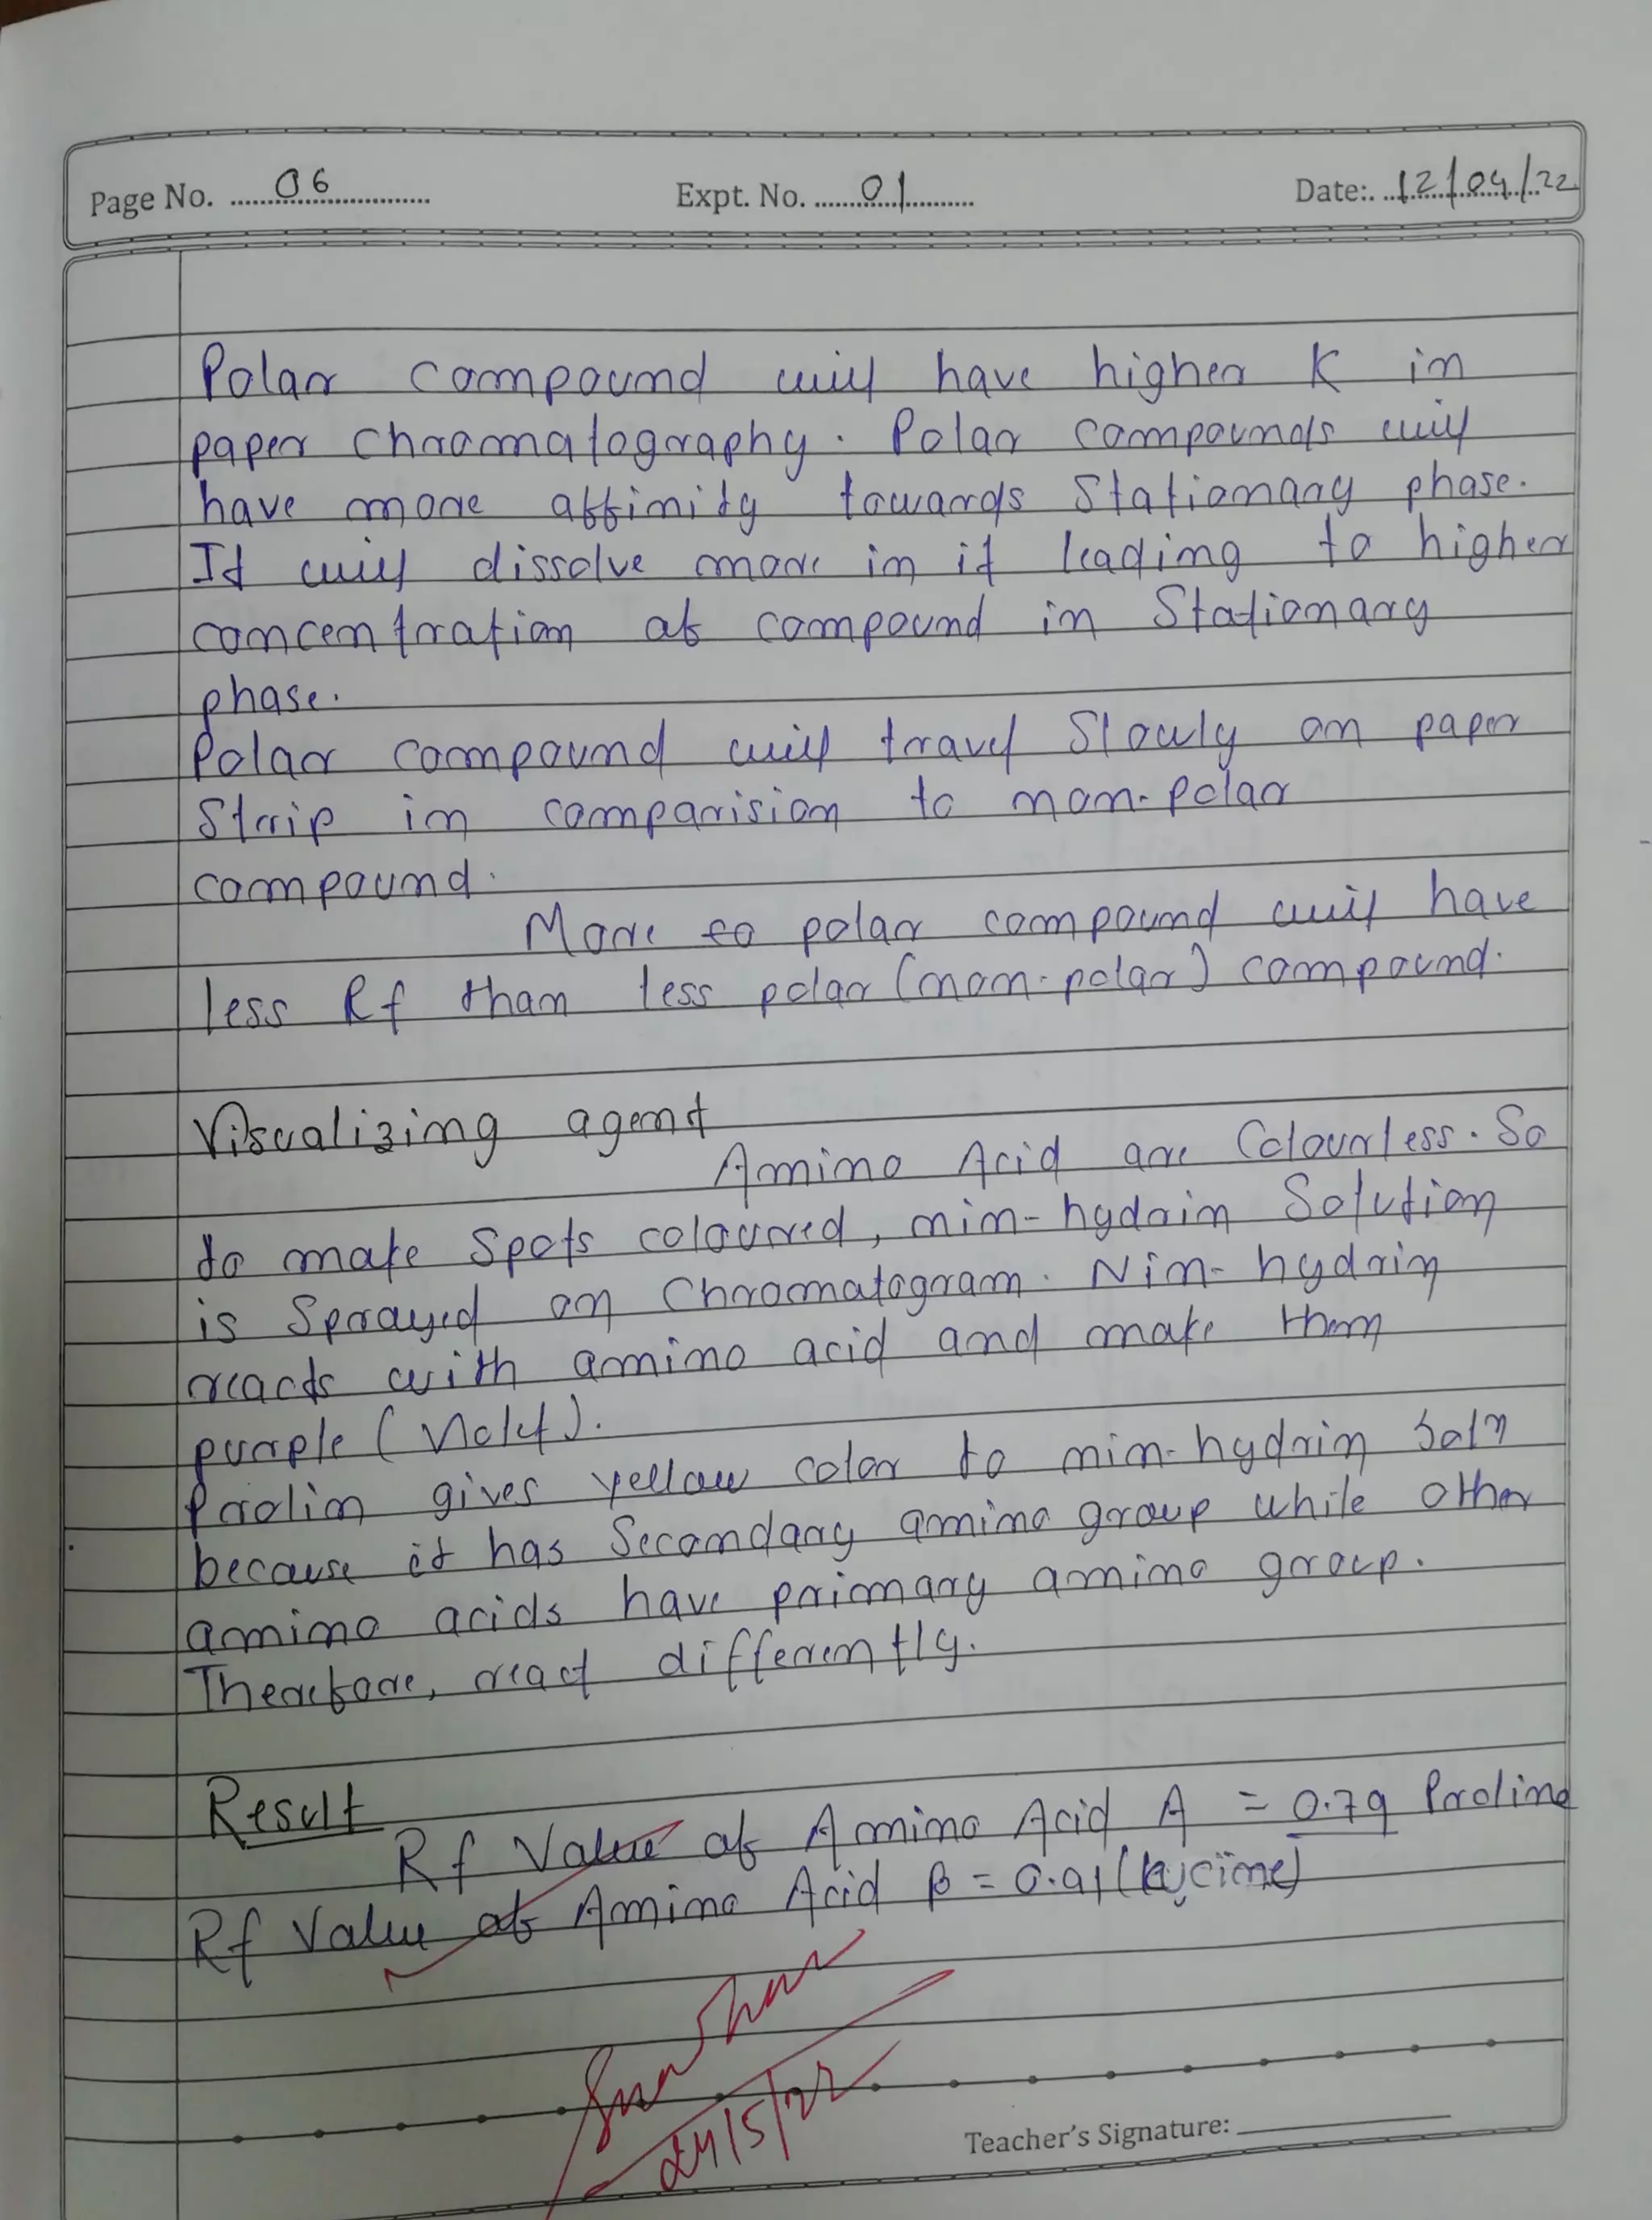 Page No. 06 Expt. No. 01 Date:. 12/04/22
Polar compound will have higher K in
paper chromatography. Polar compounds will
have more affinity towards Stationary phase.
It will dissolve more in it leading to higher
concentration of compound in Stationary
phase.
Polar compound will travel Slowly on paper
Strip in comparision to non-polar
compound.
More to polar compound will have
less Rf than less polar (non-polar) compound.
Visualizing agent
Amino Acid are Colourless. So
to make Spots coloured, nin-hydrin Solution
is Sprayed on Chromatogram. Nin-hydrin
reacts with amino acid and make them
purple (Violet).
Prolin gives yellow color to nin-hydrin Solⁿ
because it has Secondary amino group while other
amino acids have primary amino group.
Therefore, react differently.
Result
Rf Value of Amino Acid A = 0.79 Proline
Rf Value of Amino Acid B = 0.91 (lycine)
24/5/22
Teacher's Signature: